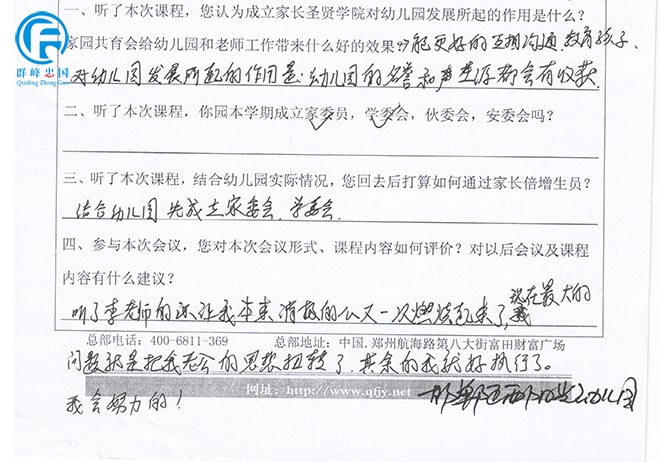 群峰忠国
Qunfeng Zhong Guo
一、听了本次课程，您认为成立家长圣贤学院对幼儿园发展所起的作用是什么？
家园共育会给幼儿园和老师工作带来什么好的效果？能更好的互相沟通，教育孩子、
对幼儿园发展所起的作用是：幼儿园的名誉和声生源都会有收获
二、听了本次课程，你园本学期成立家委员，学委会，伙委会，安委会吗？
三、听了本次课程，结合幼儿园实际情况，您回去后打算如何通过家长倍增生员？
结合幼儿园 先成立家委会 学委会
四、参与本次会议，您对本次会议形式、课程内容如何评价？对以后会议及课程
内容有什么建议？
听了李老师的课让我本来消极的心又一次燃烧起来了，我现在最大的
总部电话：400-6811-369 总部地址：中国.郑州航海路第八大街富田财富广场
问题就是把我老公的思想扭转了，其余的我就好执行了。
网址：http://www.qfjy.net
我会努力的！ 幼儿园